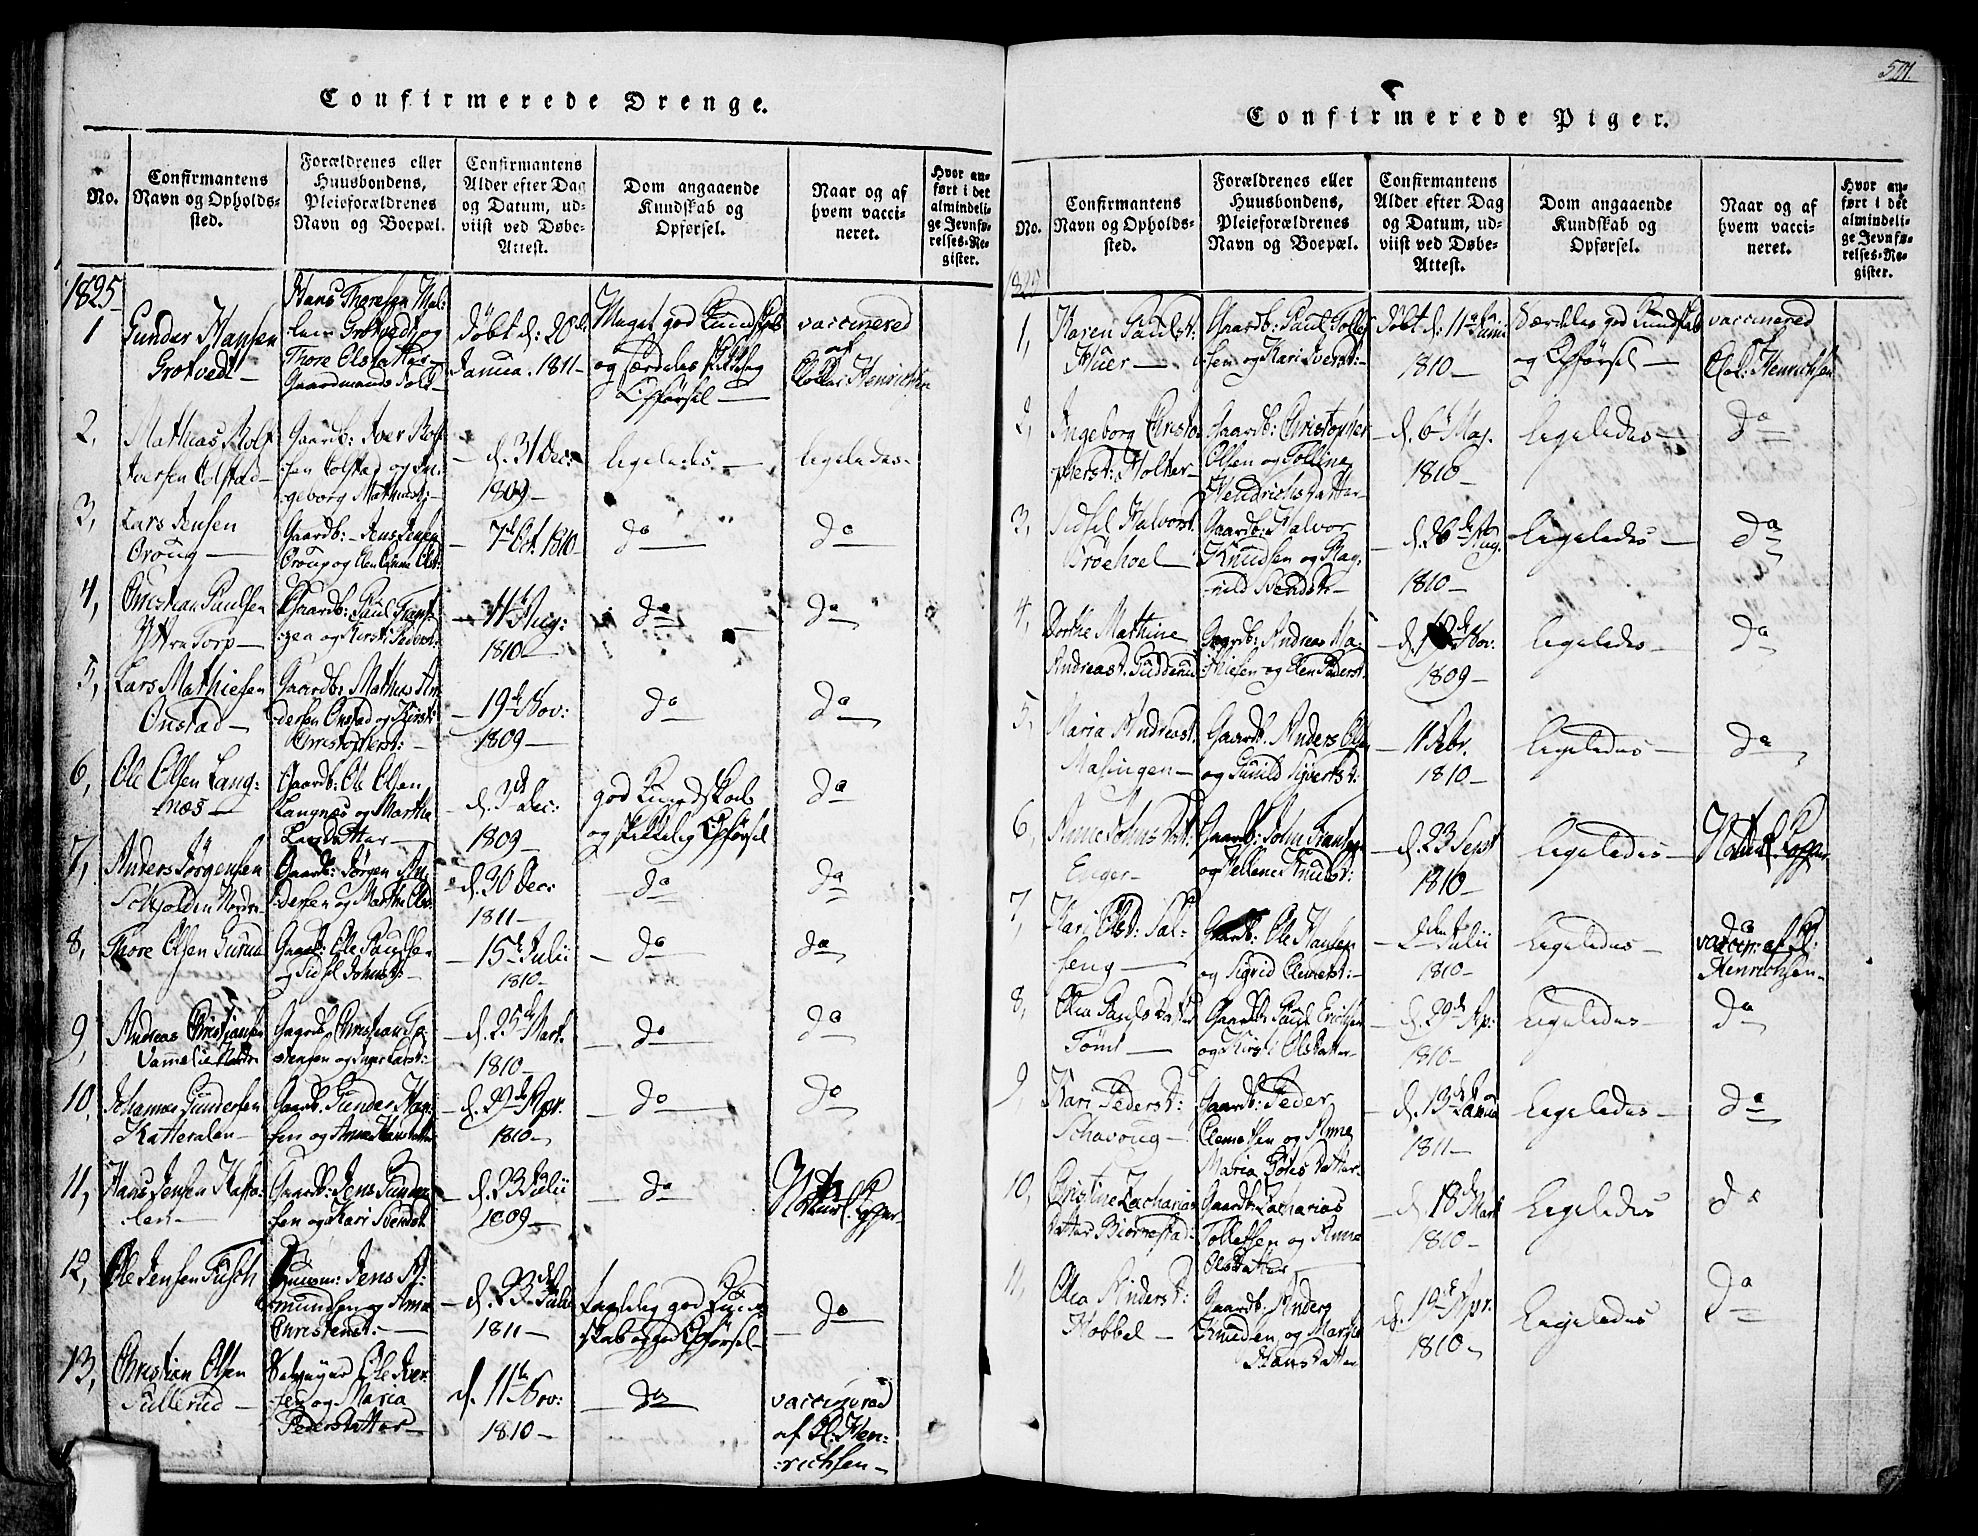 Confirmerede Drenge.
No.
Confirmantens
Navn og Opholds-
sted.
Forældrenes eller
Huusbondens,
Pleieforældrenes
Navn og Boepæl.
Confirmantens
Alder efter Dag
og Datum, ud-
viist ved Døbe-
Attest.
Dom angaaende
Kundskab og
Opførsel.
Naar og af
hvem vacci-
neret.
Hvor an-
ført i det
almindeli-
ge Jevnfø-
relses-Re-
gister.
1825
1
Gunder Hansen
Grotvedt
Hans Thoresen
Grotvedt og
Thore Olsdatter
døbt d: 20de
Janua. 1811
Meget god Kundskab
og særdeles skikkelig
Opførsel
vaccinered
af
Henrichsen
2,
Mathias Rolf
Iversen Colstad
Gaardb: Iver Rolf
sen Colstad og In-
geborg
d. 31 Dec:
1809
ligeledes
ligeledes
3,
Lars Jensen
Oroug
Gaardb: Jens Jensen
Oroug og Elen
7de Oct. 1810
do
do
4,
Christian Paulsen
Ytre Torp
Gaardb: Paul
og Kirsti
11te Aug:
1810
do
do
5,
Lars Mathiesen
Onstad
Gaardb: Mathis An-
dersen Onstad og Kirsti
Christophersd:
19de Nov:
1809
do
do
6,
Ole Olsen Lang-
næs
Gaardb: Ole Olsen
Langnæs og Marthe
Larsdatter
d. 3de Dec:
1809
god Kundskab
og skikkelig Opførsel
do
7,
Anders Jørgensen
Schjolden Nordre
Gaardb: Jørgen An-
dersen og Marthe Olsd:
d. 30 Dec:
1811
do
do
8,
Thore Olsen Surud
Gaardb: Ole Paulsen
og Sidsel Johnsd:
15de Julii
1810
do
do
9,
Andreas Christiansen
Gaardb: Christian
og Inger Larsd:
d. 25de Mart.
1810
do
do
10,
Johannes Gundersen
Katteralen
Gaardb: Gunder
sen og Anne Hansdatter
d. 29de Apr.
1810
do
do
11,
Hans Jensen
len
Gaardb: Jens Gunder
sen og Kari
d. 23 Julii
1809
do
Naturl. Kopper
12,
Ole Jensen Tusch
Huusm: Jens A-
mundsen og Anne
Christensd:
d. 23de Julii
1811
god Kund-
skab og god Opførsel
do
13,
Christian Olsen
Sullerud
Ole Iver
sen og Maria
Pedersdatter
d. 11te Nov:
1810
do
vaccinered
af Hen-
richsen
501.
Confirmerede Piger.
No.
Confirmantens
Navn og Opholds-
sted.
Forældrenes eller
Huusbondens,
Pleieforældrenes
Navn og Boepæl.
Confirmantens
Alder efter Dag
og Datum, ud-
viist ved Døbe-
Attest.
Dom angaaende
Kundskab og
Opførsel.
Naar og af
hvem vacci-
neret.
Hvor an-
ført i det
almindeli-
ge Jevnfø-
relses-Re-
gister.
1825
1,
Karen Paulsd:
Huer
Gaardb: Paul Tollef
sen og Kari Iversd:
døbt d: 11te Junii
1810
Særdeles god Kundskab
og Opførsel
vaccinered
Henrichsen
2,
Ingeborg Christo-
phersd: Holter
Gaardb: Christopher
Olsen og Golline
Hendrichsdatter
d. 6te Maj.
1810
ligeledes
do
3,
Sidsel Halvorsd:
Gaardb: Halvor
Knudsen og Rag-
nild
d. 26de Aug.
1810
ligeledes
do
4,
Dorthe Mathine
Andreasd: Gudderud
Gaardb: Andreas Ma-
thiesen og Elen Pedersd:
Nov:
1809
ligeledes
do
5,
Maria Andreasd:
Masingen
Gaardb: Anders Olsen
og Gunild Syversd:
11 Febr.
1810
ligeledes
do
6,
Anne Johnsdat:
Enger
Gaardb: John Hansen
og Hellene Knudsd:
d. 23 Sept
1810
ligeledes
Naturl. Kopper
7,
Kari Olsd: Sal-
seng
Gaardb: Ole Hansen
og Sigrid Clemetsd:
2den Julii
1810
ligeledes
do
vaccin: af
Henrichsen
8,
Olea Paulsdatter
Tømt
Gaardb: Paul Erichsen
og Kirsti Olsdatter
d. 29de Ap:
1810
ligeledes
do
9
Kari Pedersd:
Schavoug
Gaardb: Peder
Clemetsen og Anne
Maria
d. 13de Janua
1811
ligeledes
do
10,
Christine Zacharias
datter Biørnestad
Gaardb: Zacharias
Tollefsen og Anne
Olsdatter
d. 18de Mart
1810
ligeledes
do
11,
Olea Andersd:
Hobbel
Gaardb: Anders
Knudsen og Marthe
Hansdatter
d. 19de Apr.
1810
ligeledes
do